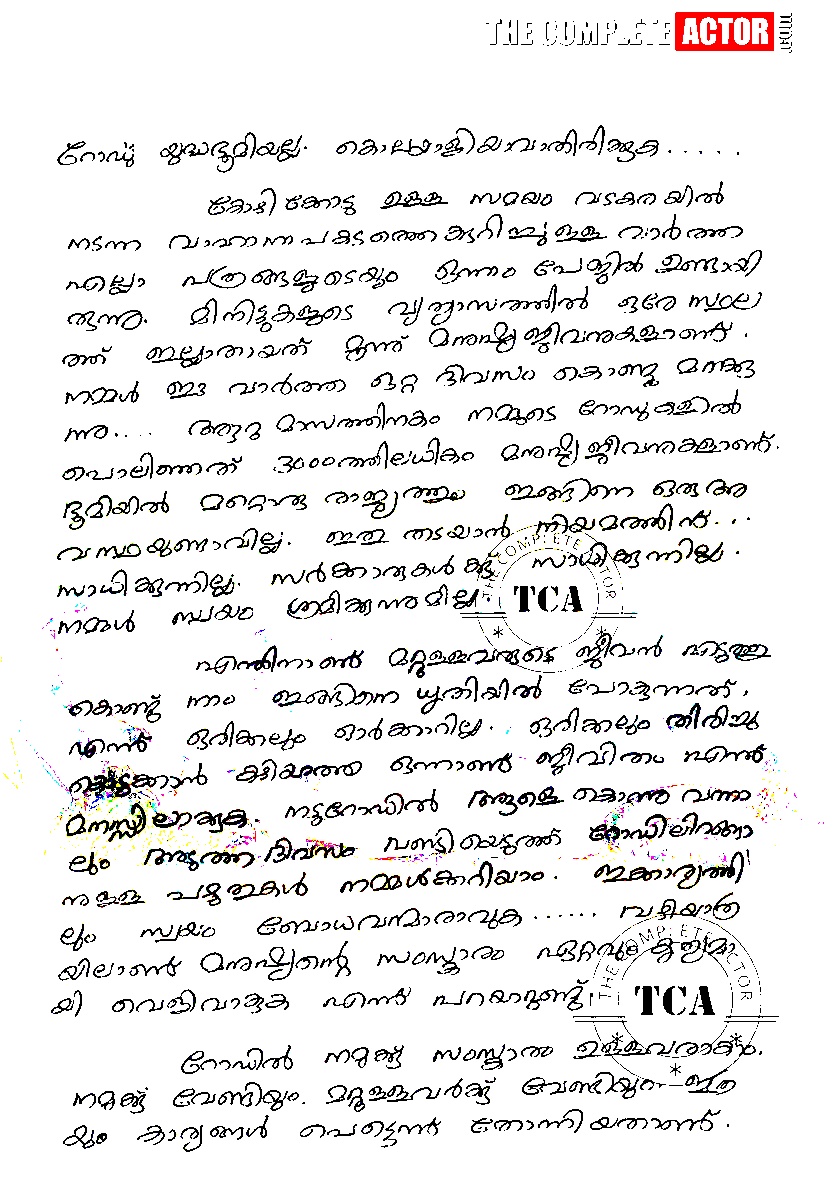 THE COMPLETE ACTOR
റോഡ് യുദ്ധഭൂമിയല്ല. കൊലയാളിയാവാതിരിക്കുക.....
കോഴിക്കോട്ടു ഉള്ള സമയം വടകരയിൽ
നടന്ന വാഹനാപകടത്തെക്കുറിച്ചുള്ള വാർത്ത
എല്ലാ പത്രങ്ങളുടെയും ഒന്നാം പേജിൽ ഉണ്ടായി
രുന്നു. മിനിട്ടുകളുടെ വ്യത്യാസത്തിൽ ഒരേ സ്ഥല
ത്ത് ഇല്ലാതായത് മൂന്ന് മനുഷ്യജീവനുകളാണ്.
നമ്മൾ ഈ വാർത്ത ഒറ്റ ദിവസം കൊണ്ടു മറക്കു
ന്നു.... ആറു മാസത്തിനകം നമ്മുടെ റോഡുകളിൽ
പൊലിഞ്ഞത് 3000ത്തിലധികം മനുഷ്യജീവനുകളാണ്.
ഭൂമിയിൽ മറ്റൊരു രാജ്യത്തും ഇങ്ങിനെ ഒരു അ
വസ്ഥയുണ്ടാവില്ല. ഇതു തടയാൻ നിയമത്തിന്...
സാധിക്കുന്നില്ല. സർക്കാരുകൾക്കു സാധിക്കുന്നില്ല.
നമ്മൾ സ്വയം ശ്രമിക്കുന്നുമില്ല.
THE COMPLETE ACTOR
TCA
എന്തിനാണ് മറ്റുള്ളവരുടെ ജീവൻ എടുത്തു
കൊണ്ട് നാം ഇങ്ങിനെ ധൃതിയിൽ പോകുന്നത്,
എന്ന് ഒരിക്കലും ഓർക്കാറില്ല. ഒരിക്കലും തിരിച്ചു
കൊടുക്കാൻ കഴിയാത്ത ഒന്നാണ് ജീവിതം എന്ന്
മനസ്സിലാക്കുക. നടുറോഡിൽ ആളെ കൊന്നു വന്നാ
ലും അടുത്ത ദിവസം വണ്ടിയെടുത്ത് റോഡിലിറങ്ങാ
നുള്ള പഴുതുകൾ നമ്മൾക്കറിയാം. ഇക്കാര്യത്തി
ലും സ്വയം ബോധവന്മാരാവുക...... വഴിയാത്ര
യിലാണ് മനുഷ്യന്റെ സംസ്ക്കാരം ഏറ്റവും കൃത്യമാ
യി വെളിവാകുക എന്ന് പറയാറുണ്ട്.
THE COMPLETE ACTOR
TCA
റോഡിൽ നമുക്കു സംസ്ക്കാരം ഉള്ളവരാകാം.
നമുക്കു വേണ്ടിയും. മറ്റുള്ളവർക്ക് വേണ്ടിയും ഇത്ര
യും കാര്യങ്ങൾ പെട്ടെന്ന് തോന്നിയതാണ്.